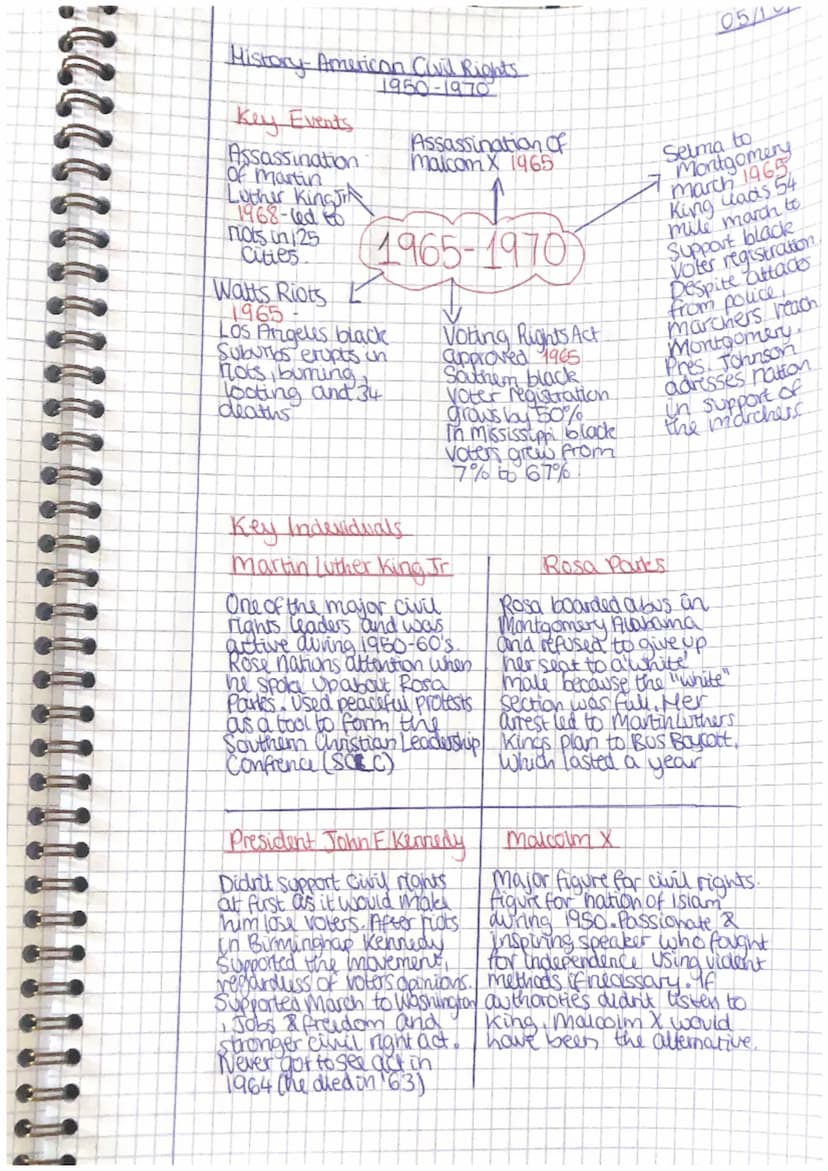 05/10/
History- American Civil Rights
1950-1970
Key Events
Assassination
of martin
Luther King Jr
1968-led to
riots in 125
cities.
Assassination of
malcom X 1965
Selma to
Montgomery
march 1965
King leads 54
mile march to
support black
voter registration
Despite attacks
from police,
marchers reach
Montgomery.
Pres. Johnson
adresses nation
in support of
the marchers
1965-1970
Watts Riots
1965 -
Los Angeles black
Suburbs erupts in
riots, burning,
looting and 34
deaths
Voting Rights Act
approved 1965
Southern black
voter registration
grows by 50%
in mississippi black
voters grew from
7% to 67%.
Key Individuals
Martin Luther King Jr
One of the major civil
rights leaders and was
active during 1950-60's.
Rose nations attention when
he spoke up about Rosa
Parks. Used peaceful protests
as a tool to form the
Southern Christian Leadership
Confrence (SCLC)
Rosa Parks
Rosa boarded a bus in
Montgomery Alabama
and refused to give up
her seat to a 'white'
male because the "white"
section was full. Her
arrest led to Martin Luthers
Kings plan to Bus Boycott,
which lasted a year
President John F Kennedy
Didn't support civil rights
at first as it would make
him lose voters. After riots
in Birmingham Kennedy
supported the movement,
regardless of voters opinions.
Supported March to Washington
, Jobs & freedom and
stronger civil right act.
Never got to see act in
1964 (he died in '63)
Malcolm X
Major figure for civil rights.
figure for nation of Islam
during 1950. Passionate &
inspiring speaker who fought
for independence using violent
methods if necissary. If
authoroties didn't listen to
King, Malcolm X would
have been the alternative.